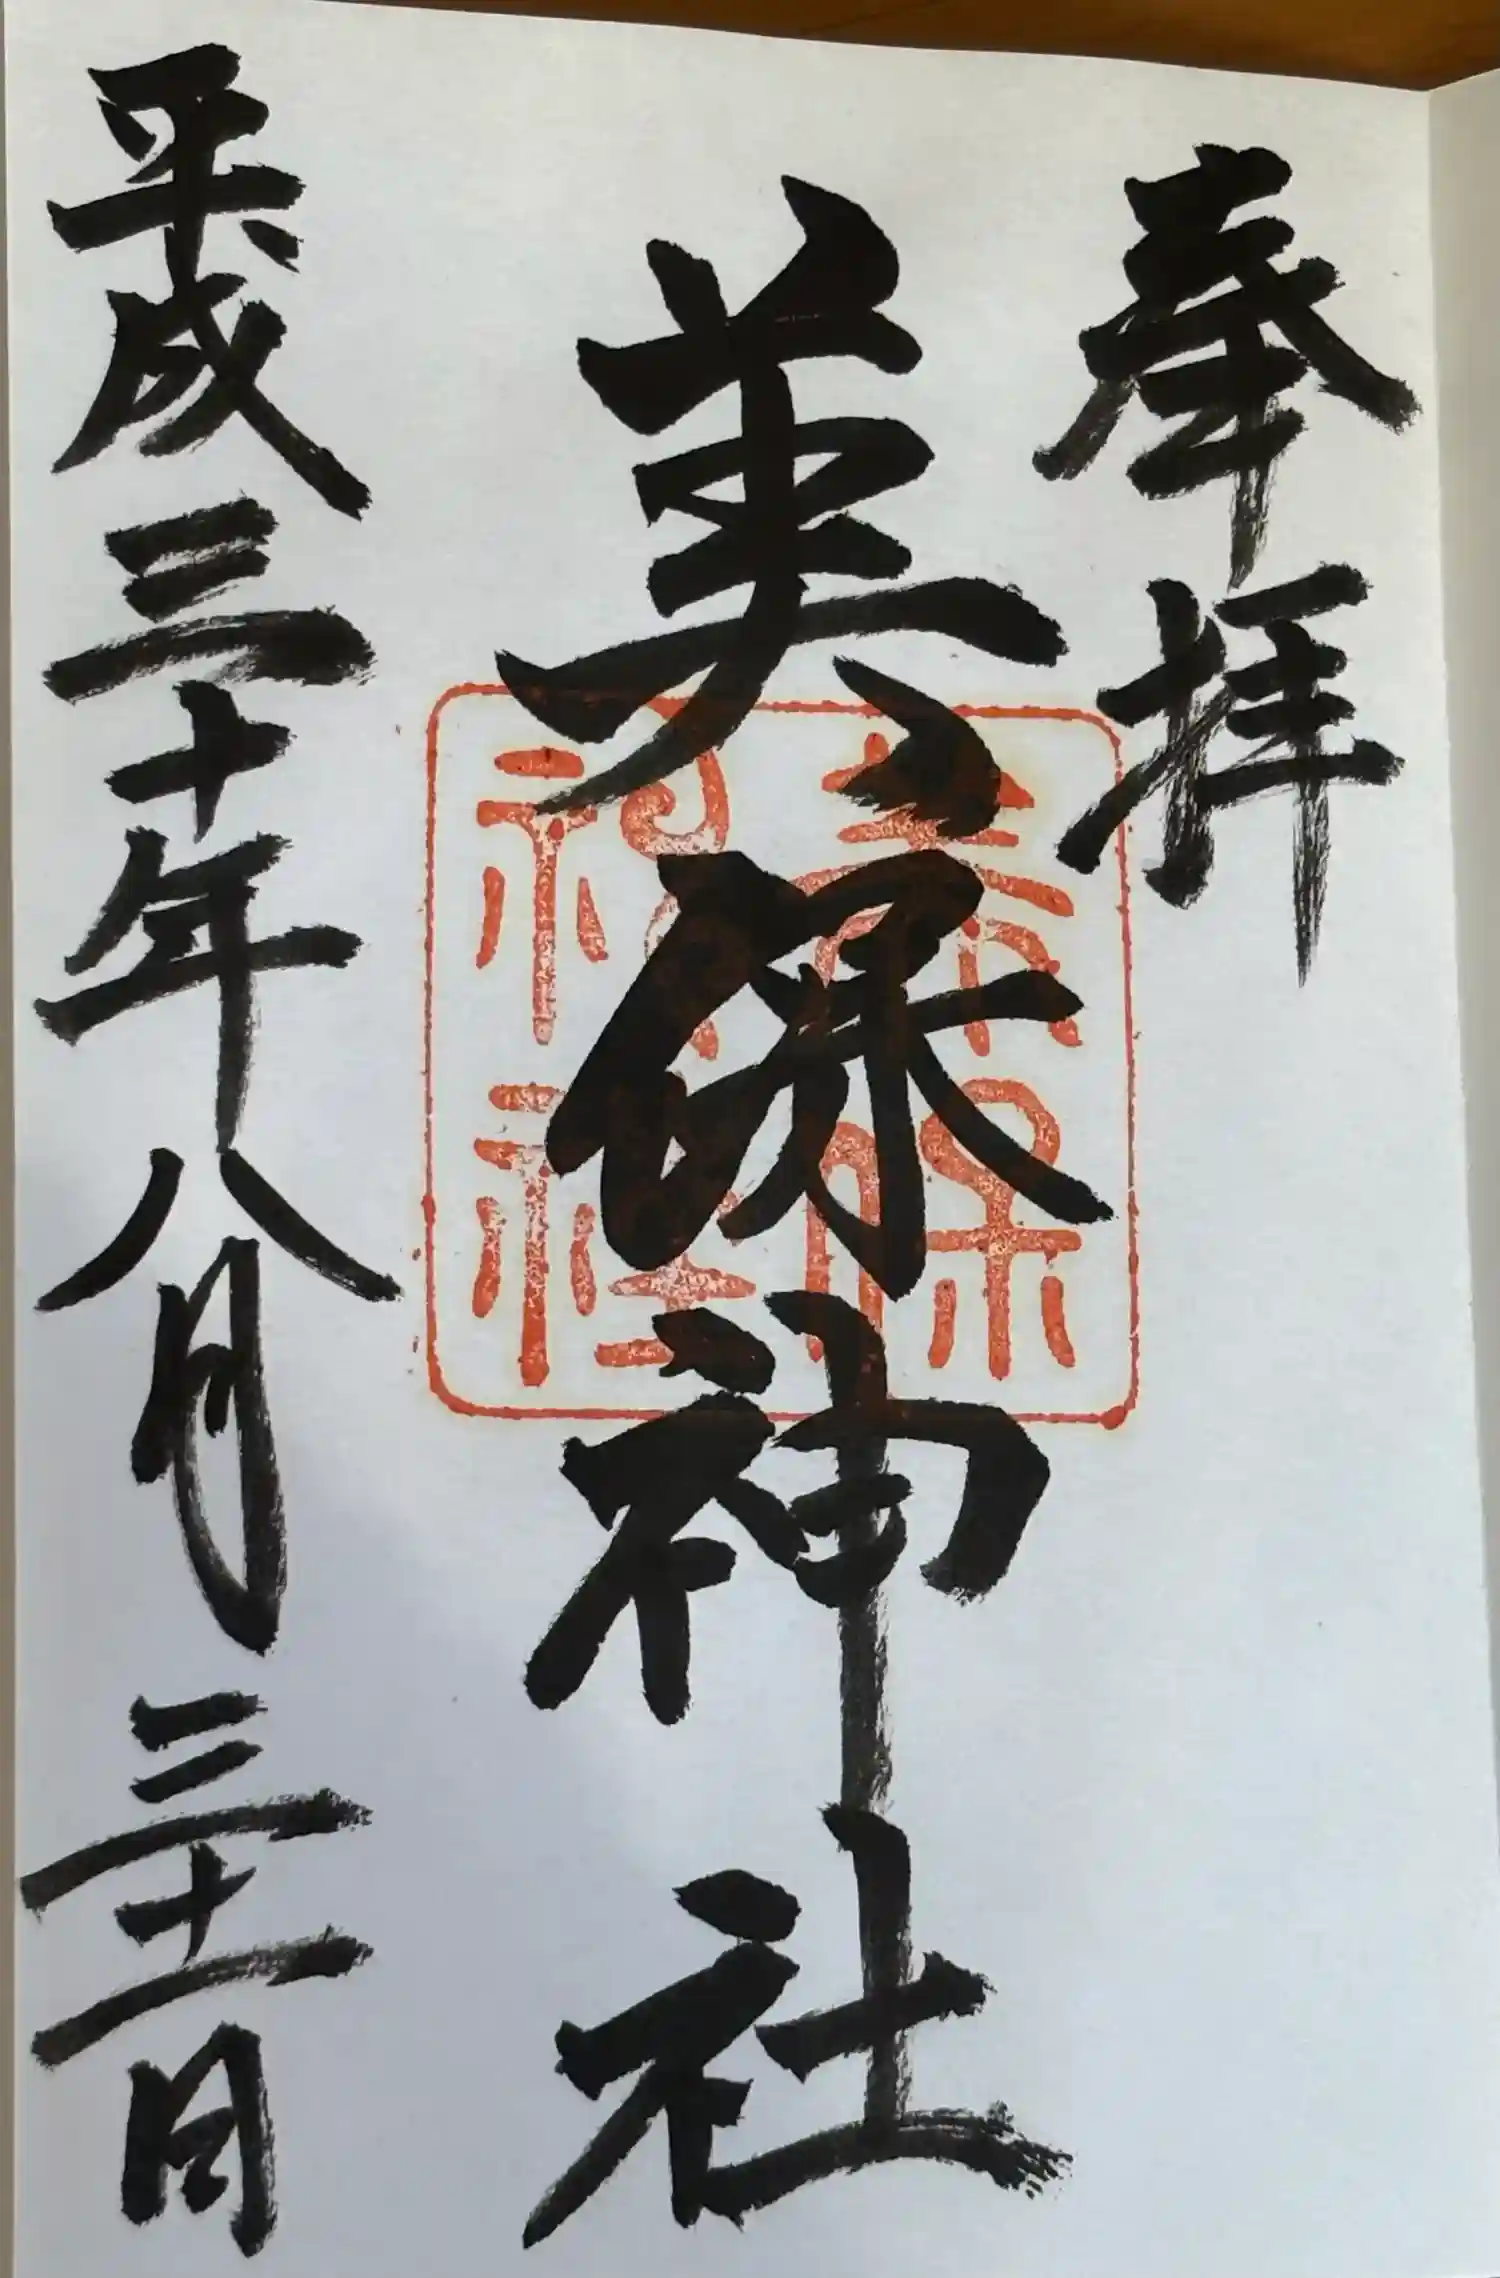 奉拝
美保神社
美保神社
平成三十年八月三十一日